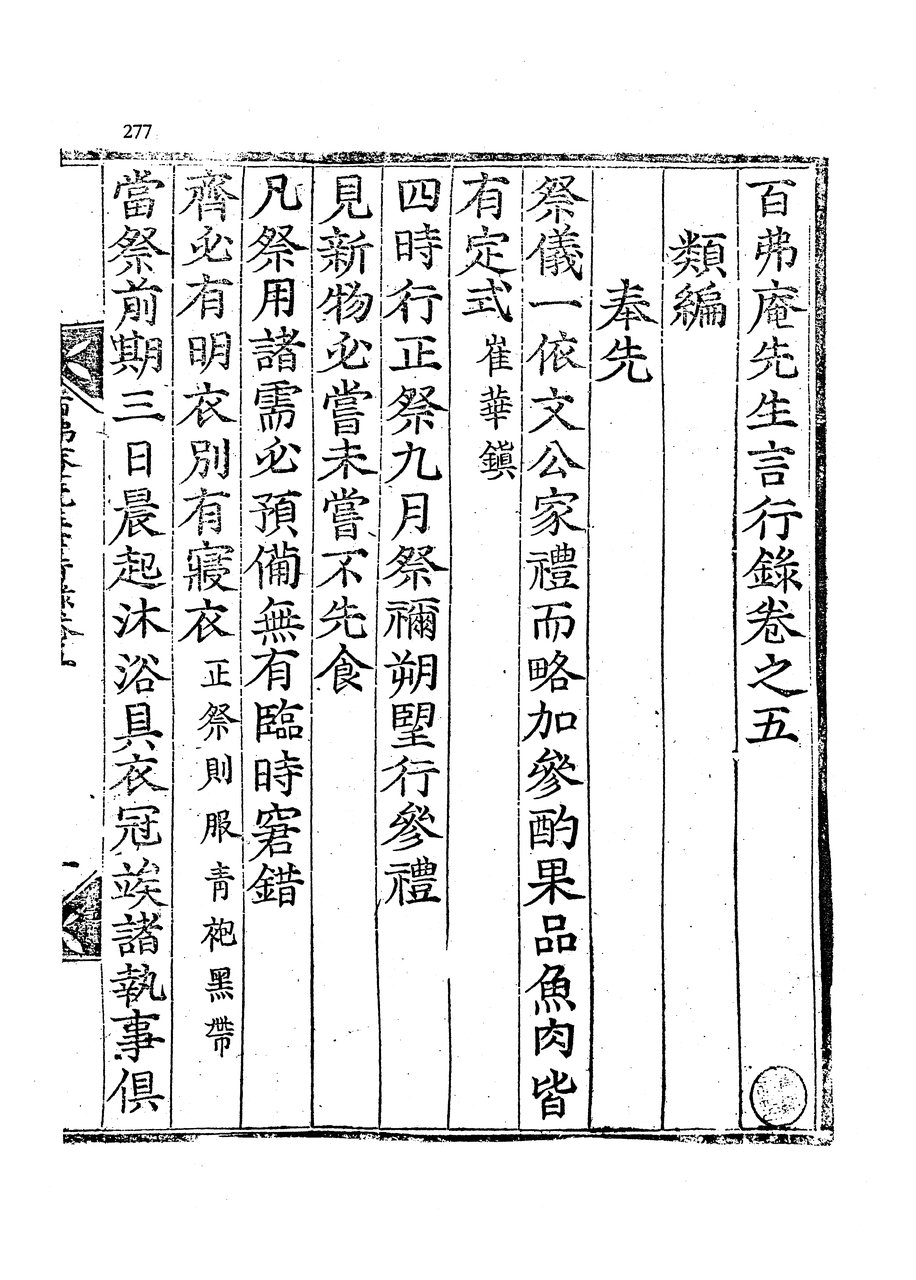 277
百弗庵先生言行錄卷之五
類編
奉先
祭儀一依文公家禮而略加參酌果品魚肉皆
有定式崔華鎭
四時行正祭九月祭禰朔朢行參禮
見新物必嘗未嘗不先食
凡祭用諸需必預備無有臨時窘錯
齊必有明衣別有寢衣正祭則服靑袍黑帶
當祭前期三日晨起沐浴具衣冠竢諸執事俱